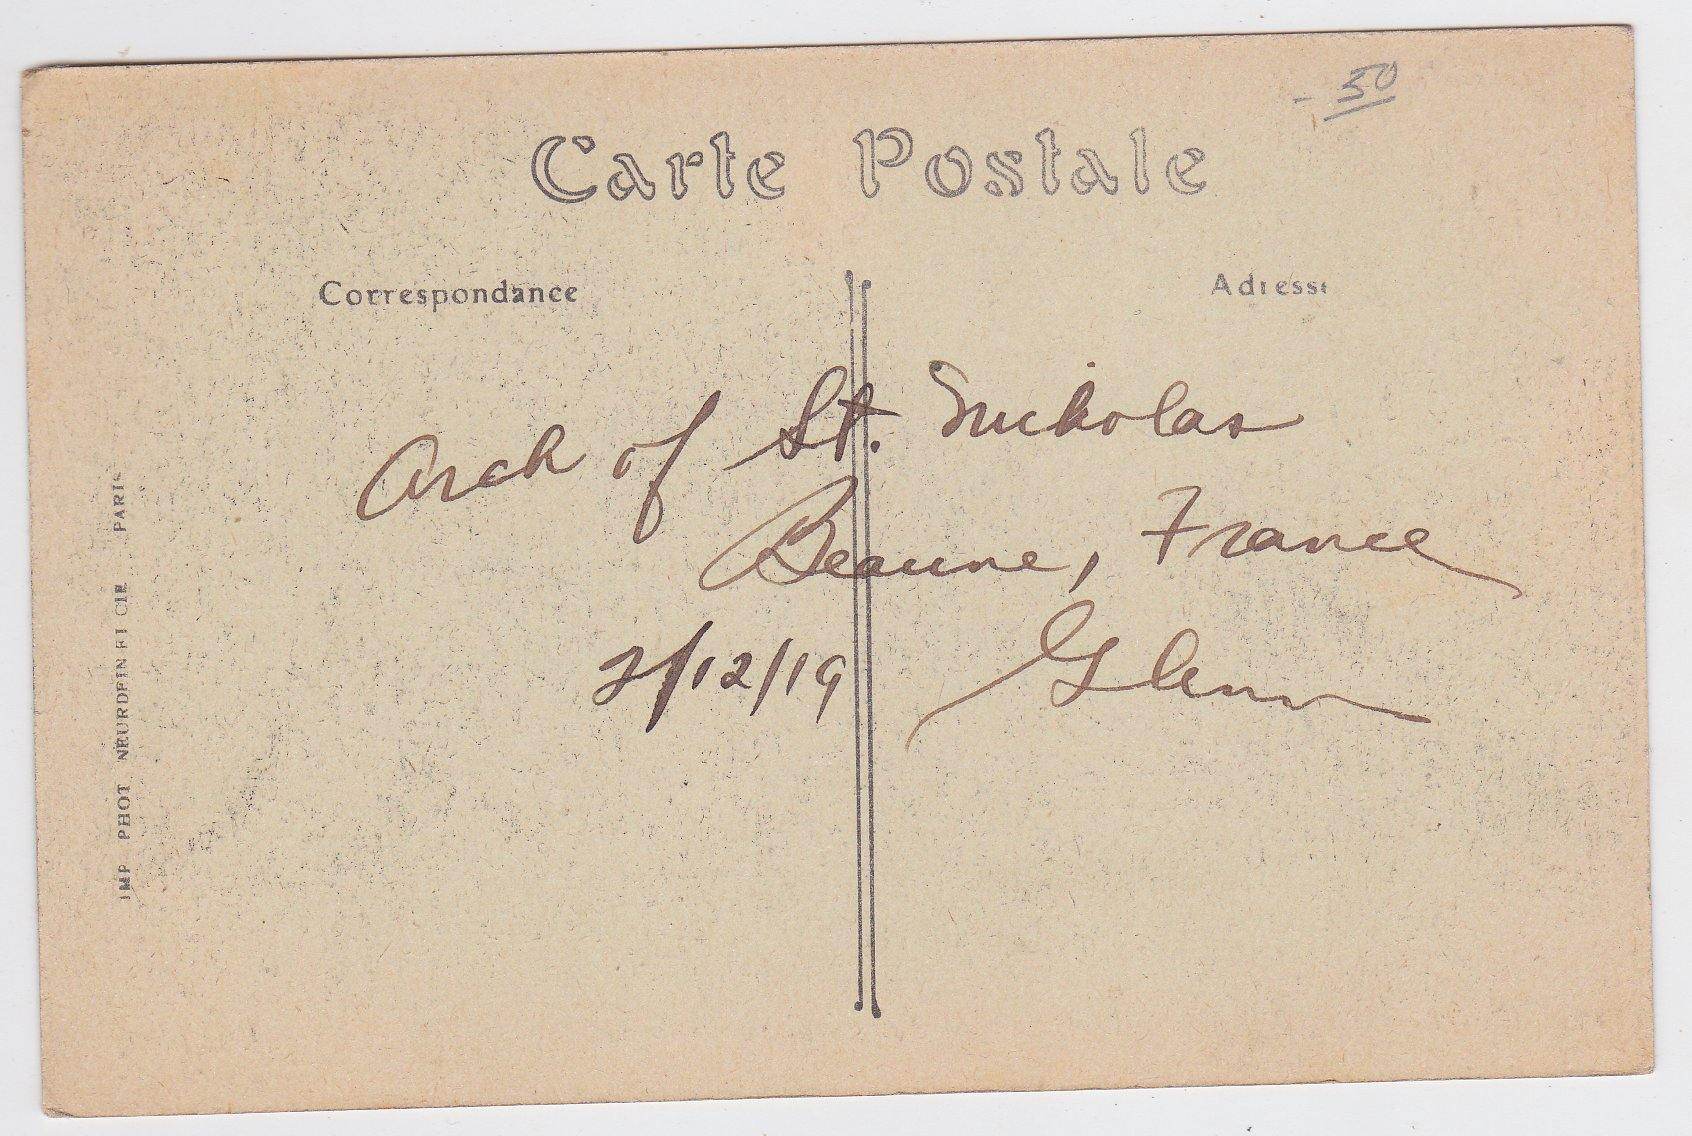 - 50
Carte Postale
Correspondance
Adresse
Arch of St. Nicholas
Beaune, France
2/12/19 Glenn
IMP PHOT NEURDEIN ET CIE PARIS